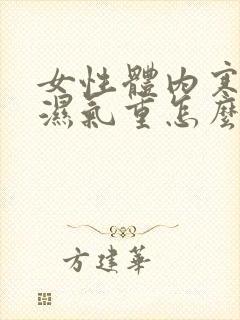 女性體內寒
濕氣重怎麼
方建華